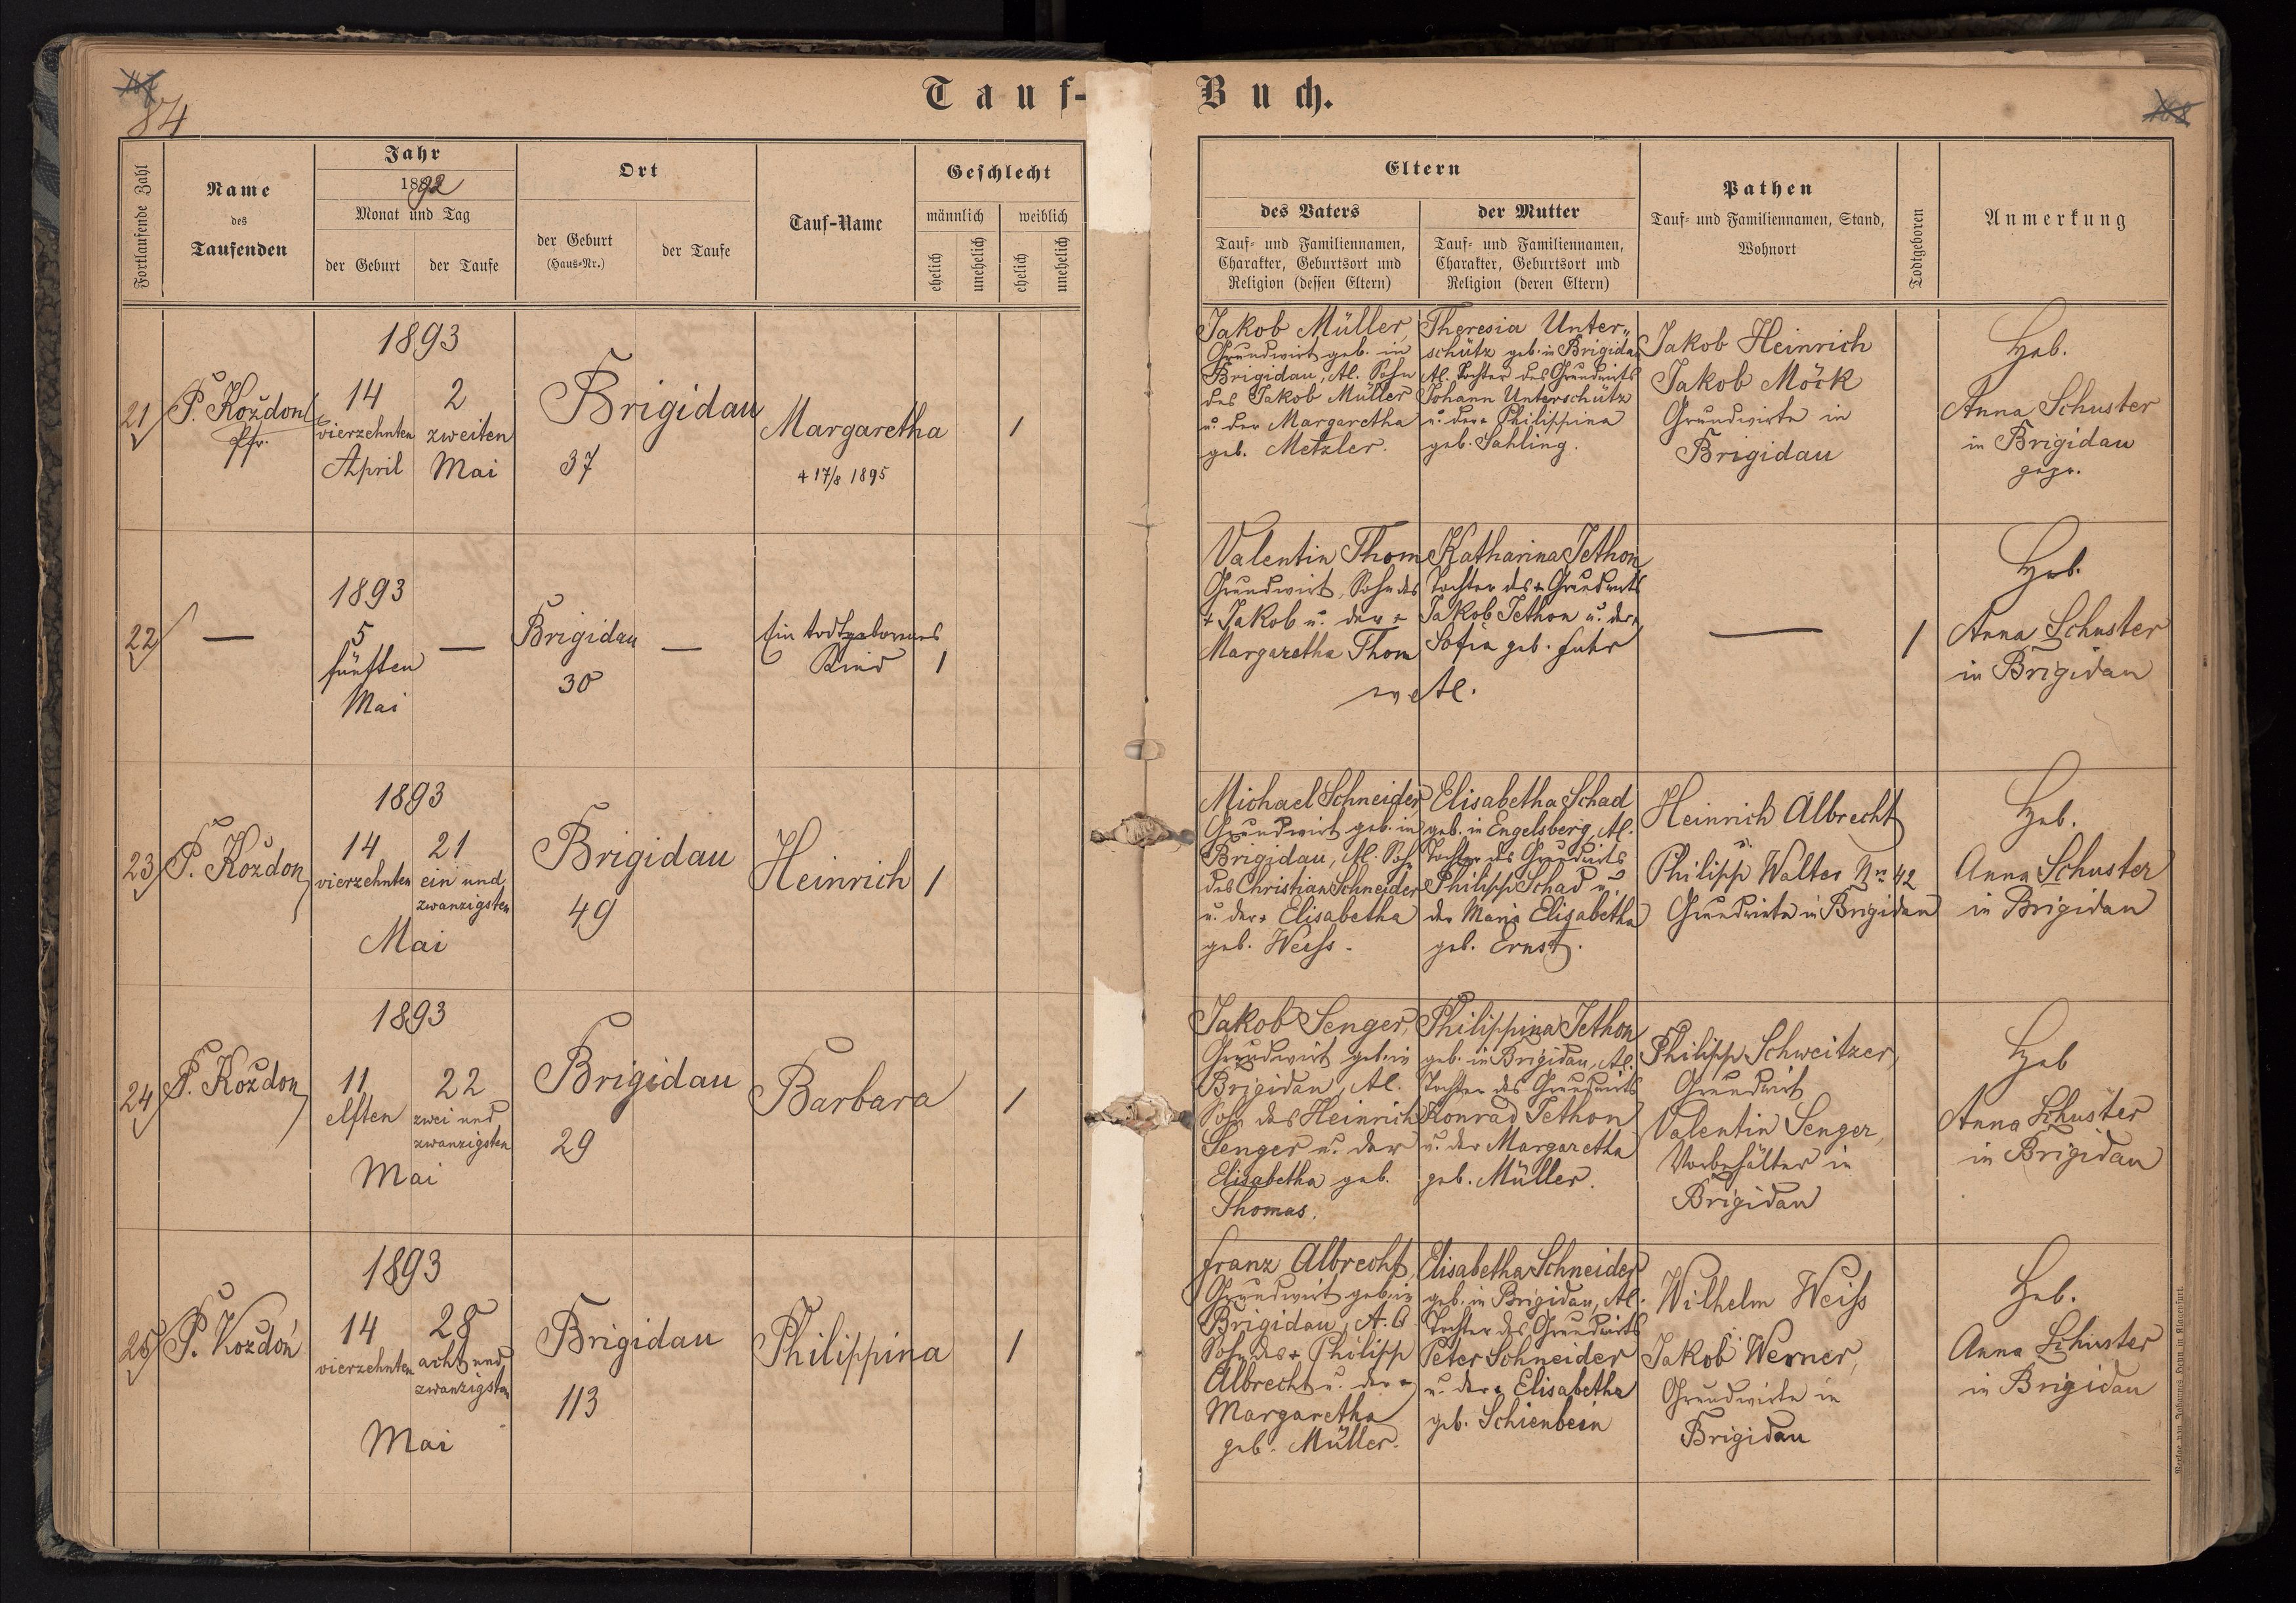 84
Tauf-Buch.
Fortlaufende Zahl
Name
des
Taufenden
Jahr
1892
Monat und Tag
der Geburt
der Taufe
Ort
der Geburt
(Haus-Nr.)
der Taufe
Tauf-Name
Geschlecht
männlich
weiblich
ehelich
unehelich
ehelich
unehelich
Eltern
des Vaters
Tauf- und Familiennamen,
Charakter, Geburtsort und
Religion (dessen Eltern)
der Mutter
Tauf- und Familiennamen,
Charakter, Geburtsort und
Religion (deren Eltern)
Pathen
Tauf- und Familiennamen, Stand,
Wohnort
Todtgeboren
Anmerkung
21
P. Koždon
Pfr.
1893
14
vierzehnten
April
2
zweiten
Mai
Brigidau
37
Margaretha
+ 17/8 1895
1
Jakob Müller,
Grundwirt geb. in
Brigidau, Al. Sohn
des Jakob Müller
u. der Margaretha
geb. Metzler.
Theresia Unter-
schütz geb. in Brigidau
Al. Tochter des Grundwirts
Johann Unterschütz
u. der + Philippina
geb. Sahling.
Jakob Heinrich
Jakob Möck
Grundwirte in
Brigidau
Heb.
Anna Schuster
in Brigidau
gepr.
22
—
1893
5
fünften
Mai
—
Brigidau
30
—
Ein todtgebornes
Kind
1
Valentin Thom
Grundwirt, Sohn des
+ Jakob u. der +
Margaretha Thom
Katharina Jethon
Tochter des + Grundwirts
Jakob Jethon u. der +
Sofia geb. Fuhr
Al.
—
1
Heb.
Anna Schuster
in Brigidau
23
P. Koždon
1893
14
vierzehnten
21
ein und
zwanzigsten
Mai
Brigidau
49
Heinrich
1
Michael Schneider
Grundwirt geb. in
Brigidau, Al. Sohn
des Christian Schneider
u. der + Elisabetha
geb. Weiss.
Elisabetha Schad
geb. in Engelsberg, Al.
Tochter des Grundwirts
Philipp Schad u.
der Maria Elisabetha
geb. Ernst.
Heinrich Albrecht
u.
Philipp Walter Nr. 42
Grundwirte in Brigidau
Heb.
Anna Schuster
in Brigidau
24
P. Koždon
1893
11
elften
22
zwei und
zwanzigsten
Mai
Brigidau
29
Barbara
1
Jakob Senger,
Grundwirt geb. in
Brigidau, Al.
Sohn des Heinrich
Senger u. der
Elisabetha geb.
Thomas.
Philippina Jethon
geb. in Brigidau, Al.
Tochter des Grundwirts
Konrad Jethon
u. der Margaretha
geb. Müller.
Philipp Schweitzer,
Grundwirt
Valentin Senger,
Vorbehälter in
Brigidau
Heb
Anna Schuster
in Brigidau
25
P. Koždoń
1893
14
vierzehnten
28
acht und
zwanzigsten
Mai
Brigidau
113
Philippina
1
Franz Albrecht,
Grundwirt geb. in
Brigidau, A.C
Sohn des + Philipp
Albrecht u. der +
Margaretha
geb. Müller.
Elisabetha Schneider
geb. in Brigidau, Al.
Tochter des Grundwirts
Peter Schneider
u. der + Elisabetha
geb. Schienbein
Wilhelm Weiss
Jakob Werner,
Grundwirte in
Brigidau
Heb.
Anna Schuster
in Brigidau
Verlag von Johannes Heyn in Klagenfurt.